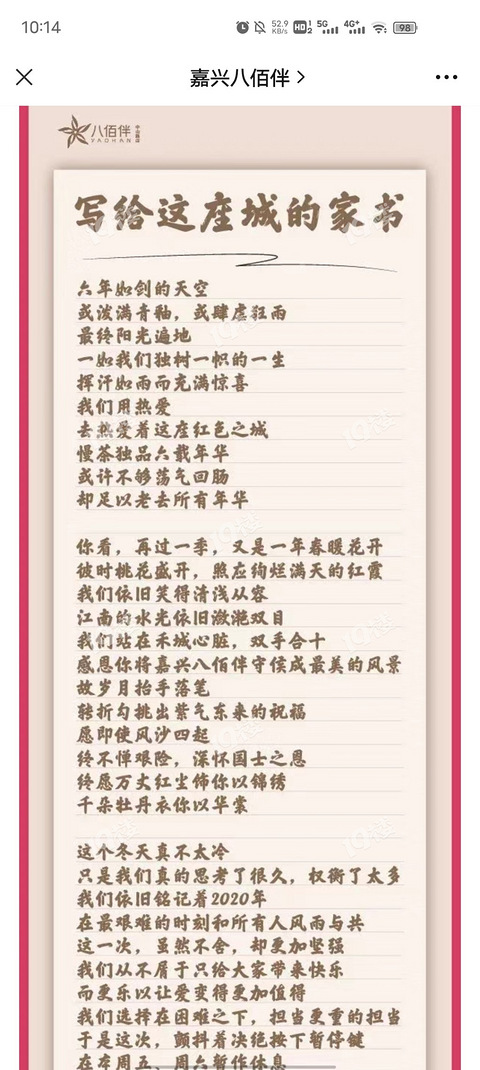 10:14
52.9
KB/s
HD 1
2
5G
4G+
98
嘉兴八佰伴
八佰伴
YAOHAN
写给这座城的家书
六年如剑的天空
或泼满青釉，或肆虐狂雨
最终阳光遍地
一如我们独树一帜的一生
挥汗如雨而充满惊喜
我们用热爱
去热爱着这座红色之城
慢茶独品六载年华
或许不够荡气回肠
却足以老去所有年华
你看，再过一季，又是一年春暖花开
彼时桃花盛开，照应绚烂满天的红霞
我们依旧笑得清浅从容
江南的水光依旧潋滟双目
我们站在禾城心脏，双手合十
感恩你将嘉兴八佰伴守侯成最美的风景
故岁月抬手落笔
转折勾挑出紫气东来的祝福
愿即使风沙四起
终不惮艰险，深怀国士之恩
终愿万丈红尘饰你以锦绣
千朵牡丹衣你以华裳
这个冬天真不太冷
只是我们真的思考了很久，权衡了太多
我们依旧铭记着2020年
在最艰难的时刻和所有人风雨与共
这一次，虽然不舍，却更加坚强
我们从不屑于只给大家带来快乐
而更乐以让爱变得更加值得
我们选择在困难之下，担当更重的担当
于是这次，颤抖着决绝按下暂停键
在本周五、周六暂作休息